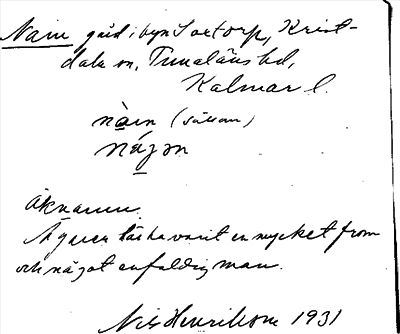 Nain gård i byn Saxtorp, Krist-
dala sn, Tunaläns hd,
Kalmar l.
nàin (sällan)
någon
Öknamn.
Ägaren lär ha varit en mycket from
och något enfaldig man.
Nils Henrikson 1931